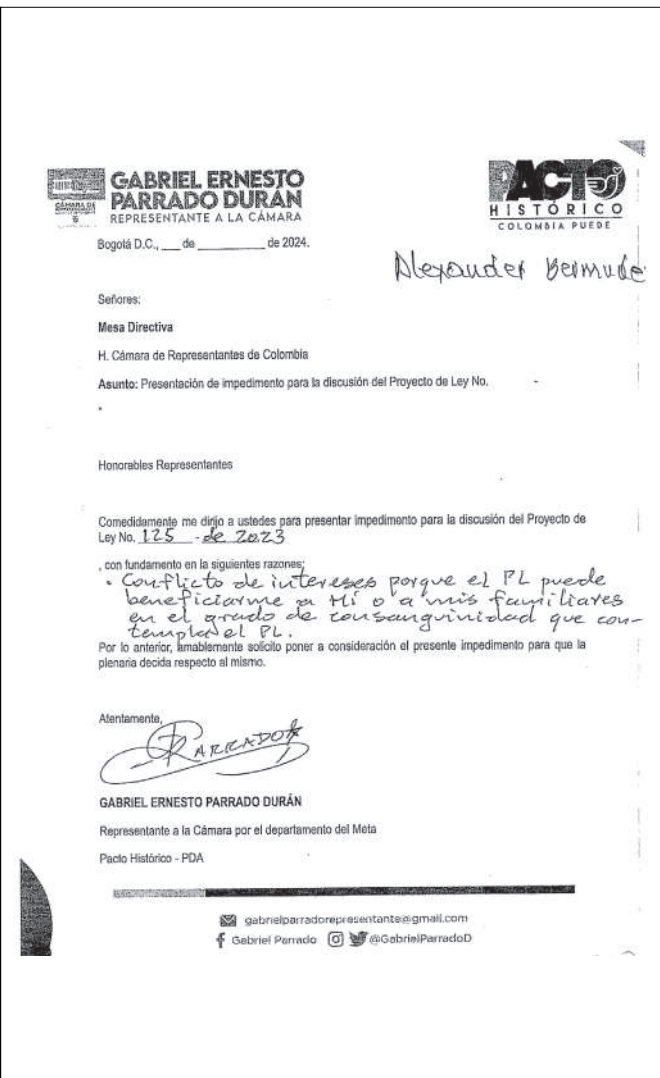 GABRIEL ERNESTO
PARRADO DURÁN
REPRESENTANTE A LA CÁMARA
PACTO
HISTÓRICO
COLOMBIA PUEDE
Bogotá D.C., ___ de __________ de 2024.
Alexander Bermude
Señores:
Mesa Directiva
H. Cámara de Representantes de Colombia
Asunto: Presentación de impedimento para la discusión del Proyecto de Ley No. -
.
Honorables Representantes
Comedidamente me dirijo a ustedes para presentar impedimento para la discusión del Proyecto de
Ley No. 125 - de 2023
, con fundamento en la siguientes razones;
• Conflicto de intereses porque el PL puede
beneficiarme a Mí o a mis familiares
en el grado de consanguinidad que con-
templa el PL.
Por lo anterior, amablemente solicito poner a consideración el presente impedimento para que la
plenaria decida respecto al mismo.
Atentamente,
PARRADO
GABRIEL ERNESTO PARRADO DURÁN
Representante a la Cámara por el departamento del Meta
Pacto Histórico - PDA
gabrielparradorepresentante@gmail.com
Gabriel Parrado @GabrielParradoD